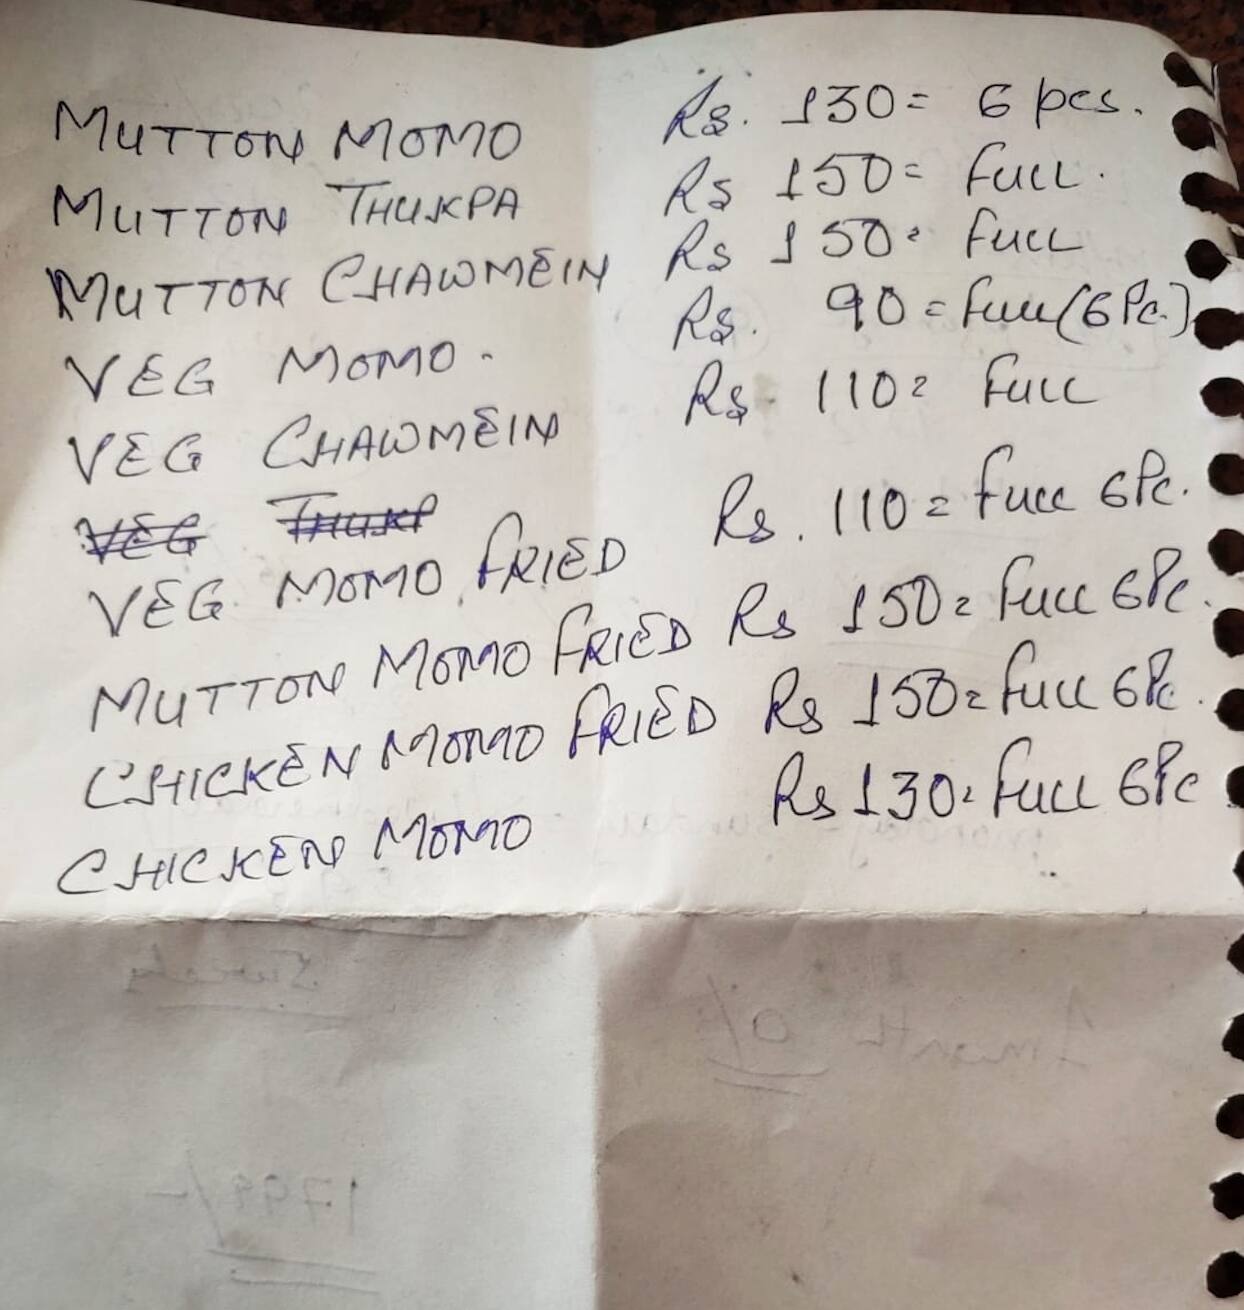 MUTTON MOMO Rs. 130= 6 pcs.
MUTTON THUKPA Rs 150= FULL.
MUTTON CHAWMEIN Rs 150= FULL
VEG MOMO. Rs. 90= Full (6 Pc.)
VEG CHAWMEIN Rs 110= FULL
VEG THUKP
VEG MOMO FRIED Rs. 110= FULL 6Pc.
MUTTON MOMO FRIED Rs 150= FULL 6Pc.
CHICKEN MOMO FRIED Rs 150= FULL 6Pc.
CHICKEN MOMO Rs 130= FULL 6Pc